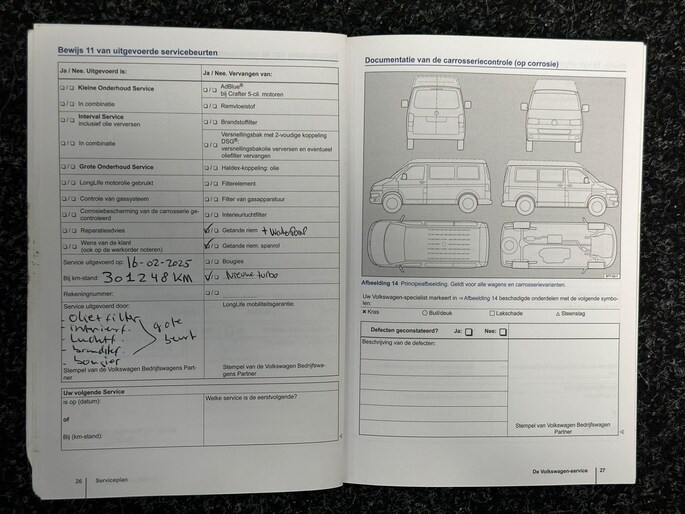 Bewijs 11 van uitgevoerde servicebeurten
Ja / Nee. Uitgevoerd is:
Kleine Onderhoud Service
In combinatie
Interval Service
inclusief olie verversen
In combinatie
Grote Onderhoud Service
LongLife motorolie gebruikt
Controle van gassysteem
Corrosiebescherming van de carrosserie ge-
controleerd
Reparatieadvies
Wens van de klant
(ook op de werkorder noteren)
Service uitgevoerd op: 16-02-2025
Bij km-stand: 301248 KM
Rekeningnummer:
Service uitgevoerd door:
- oliefilter
- interieurf.
- Luchtf.
- brandstof.
- bougies
grote
beurt
Stempel van de Volkswagen Bedrijfswagens Part-
ner
Ja / Nee. Vervangen van:
AdBlue®
bij Crafter 5-cil. motoren
Remvloeistof
Brandstoffilter
Versnellingsbak met 2-voudige koppeling
DSG®:
versnellingsbakolie verversen en eventueel
oliefilter vervangen
Haldex-koppeling: olie
Filterelement
Filter van gasapparatuur
Interieurluchtfilter
Getande riem + Waterpomp
Getande riem: spanrol
Bougies
Nieuwe turbo
LongLife mobiliteitsgarantie:
Stempel van de Volkswagen Bedrijfswa-
gens Partner
Uw volgende Service
is op (datum):
of
Bij (km-stand):
Welke service is de eerstvolgende?
26 Serviceplan
Documentatie van de carrosseriecontrole (op corrosie)
Afbeelding 14 Principeafbeelding. Geldt voor alle wagens en carrosserievarianten.
Uw Volkswagen-specialist markeert in ⇒ Afbeelding 14 beschadigde onderdelen met de volgende symbo-
len:
× Kras ○ Buil/deuk □ Lakschade △ Steenslag
Defecten geconstateerd? Ja: Nee:
Beschrijving van de defecten:
Stempel van Volkswagen Bedrijfswagen
Partner
De Volkswagen-service 27